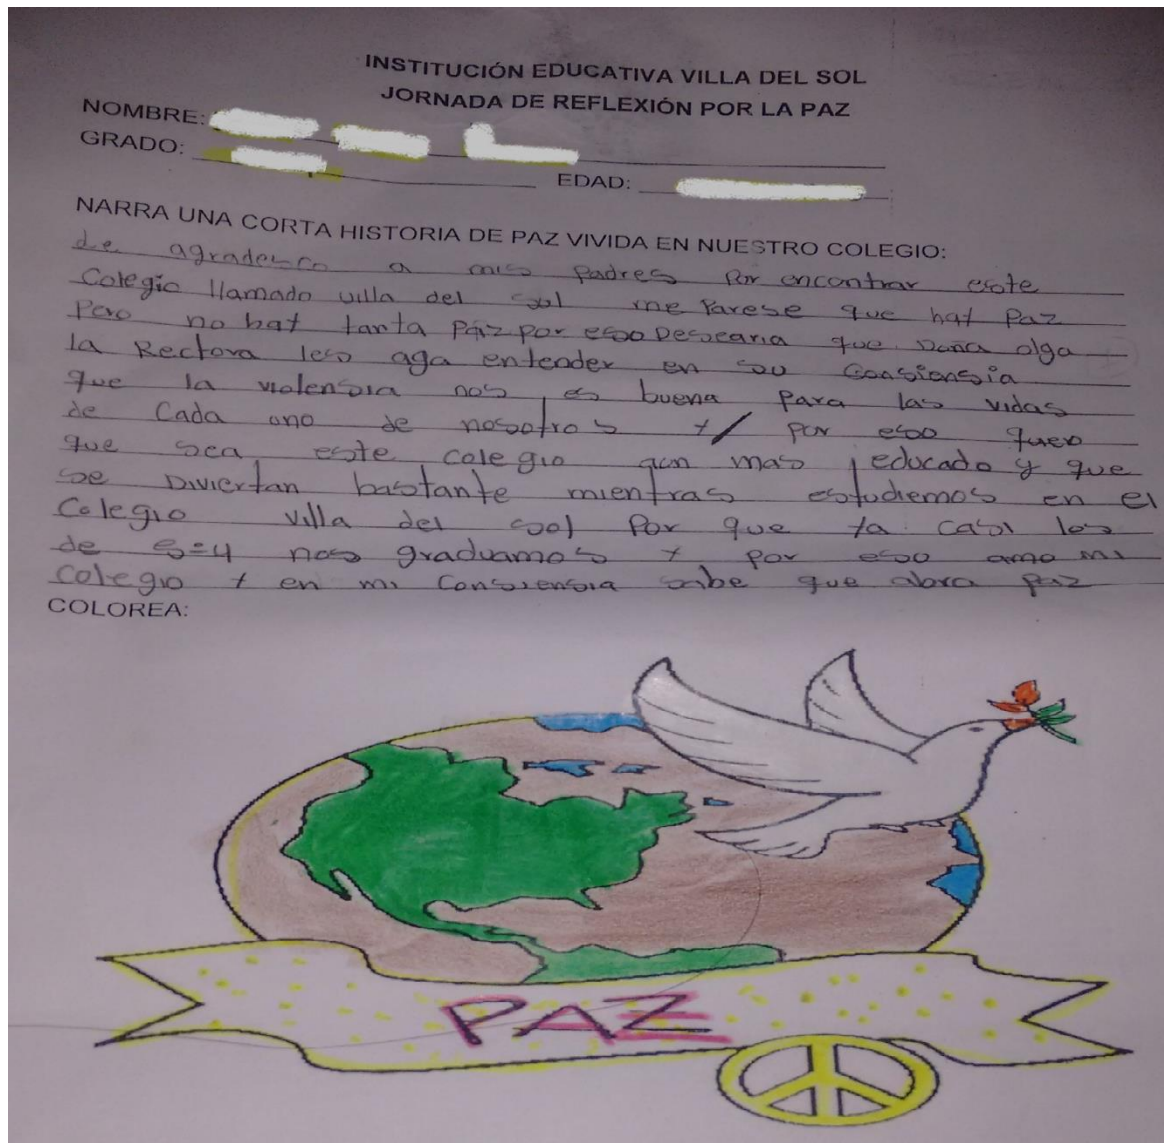 INSTITUCIÓN EDUCATIVA VILLA DEL SOL
JORNADA DE REFLEXIÓN POR LA PAZ
NOMBRE:
GRADO:
EDAD:
NARRA UNA CORTA HISTORIA DE PAZ VIVIDA EN NUESTRO COLEGIO:
Le agradesco a mis padres por encontrar este
Colegio llamado villa del sol me Parese que hat Paz
Pero no hat tanta Páz por eso Desearia que Doña olga
la Rectora les aga entender en su Consiensia
que la violensia nos es buena para las vidas
de Cada uno de nosotros t por eso quero
que sea este colegio aun mas educado y que
se Diviertan bastante mientras estudiemos en el
Colegio villa del sol Por que ta casi los
de 5=4 nos graduamos t por eso amo mi
colegio t en mi Consiensia sabe que abra paz
COLOREA:
PAZ